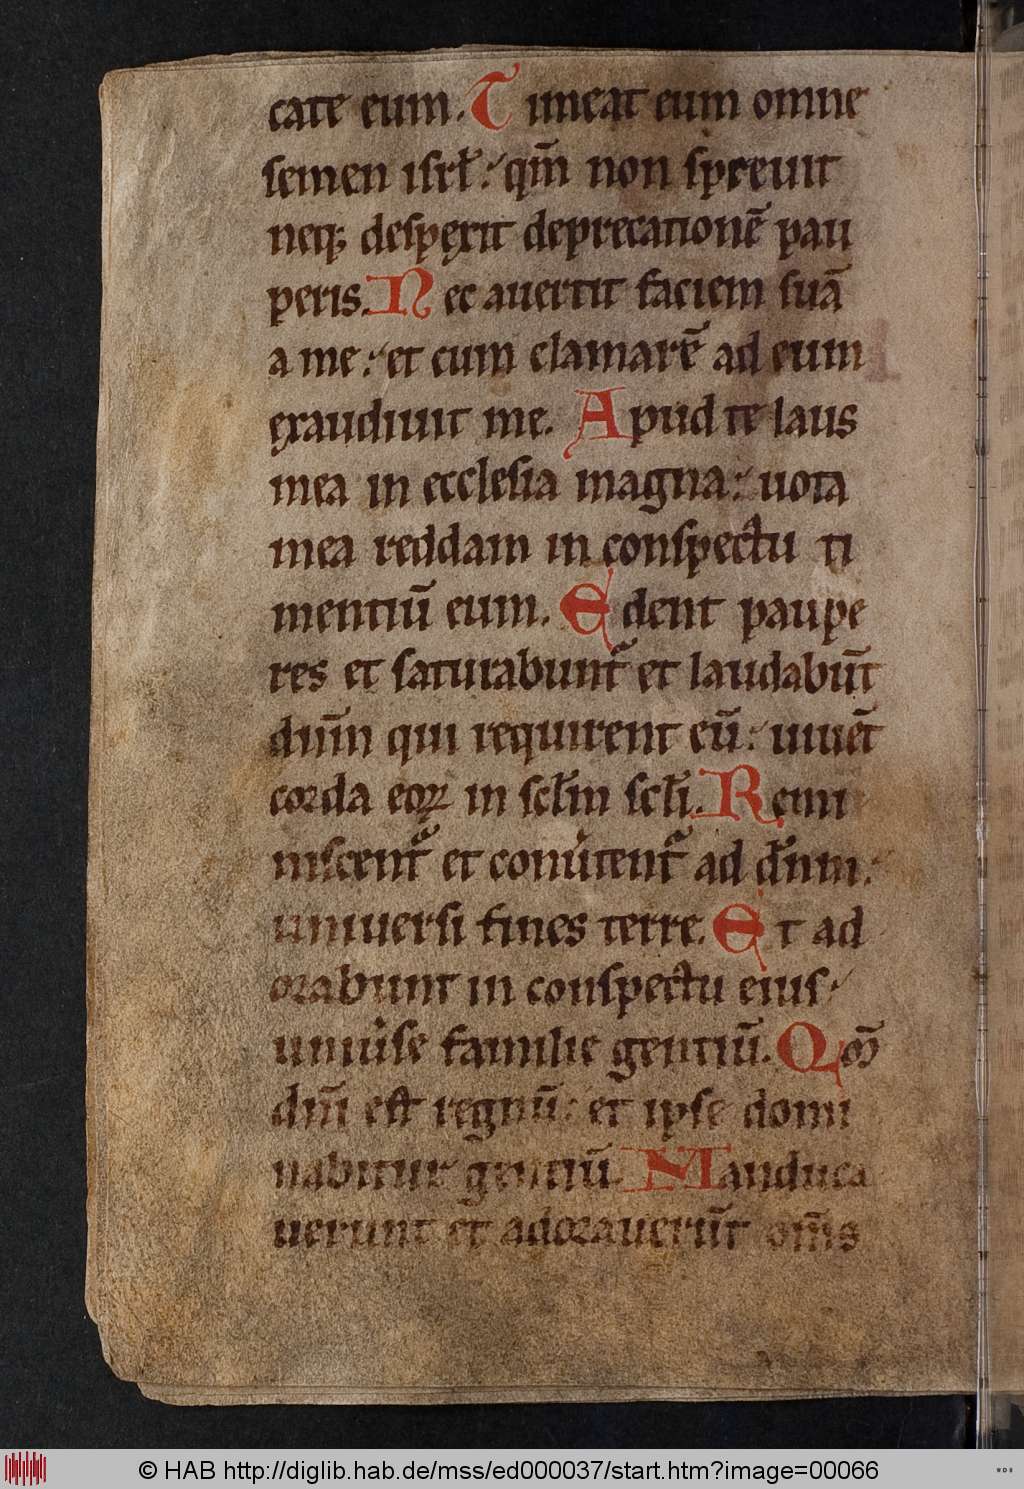 cate eum. Timeat eum omne
semen isrł: qm̄ non spreuit
neq; despęxit deprecationē pau
peris. Nec auertit faciem suā
a me: et cum clamarē ad eum
ęxaudiuit me. Apud te laus
mea in ecclesia magna: uota
mea reddam in conspectu ti
mentiū eum. Edent paupe
res et saturabunt᷑ et laudabūt
dn̄m qui requirent eū: uiuēt
corda eoꝝ in scłm scłi. Remi
niscent᷑ et conu͛tent᷑ ad dn̄m:
uniuersi fines terre. Et ad
orabunt in conspectu eius
uniu͛se familie gentiū. Qm̄
dn̄i est regnū: et ipse domi
nabitur gentiū. Manduca
uerunt et adorauerūt om̄s
© HAB http://diglib.hab.de/mss/ed000037/start.htm?image=00066